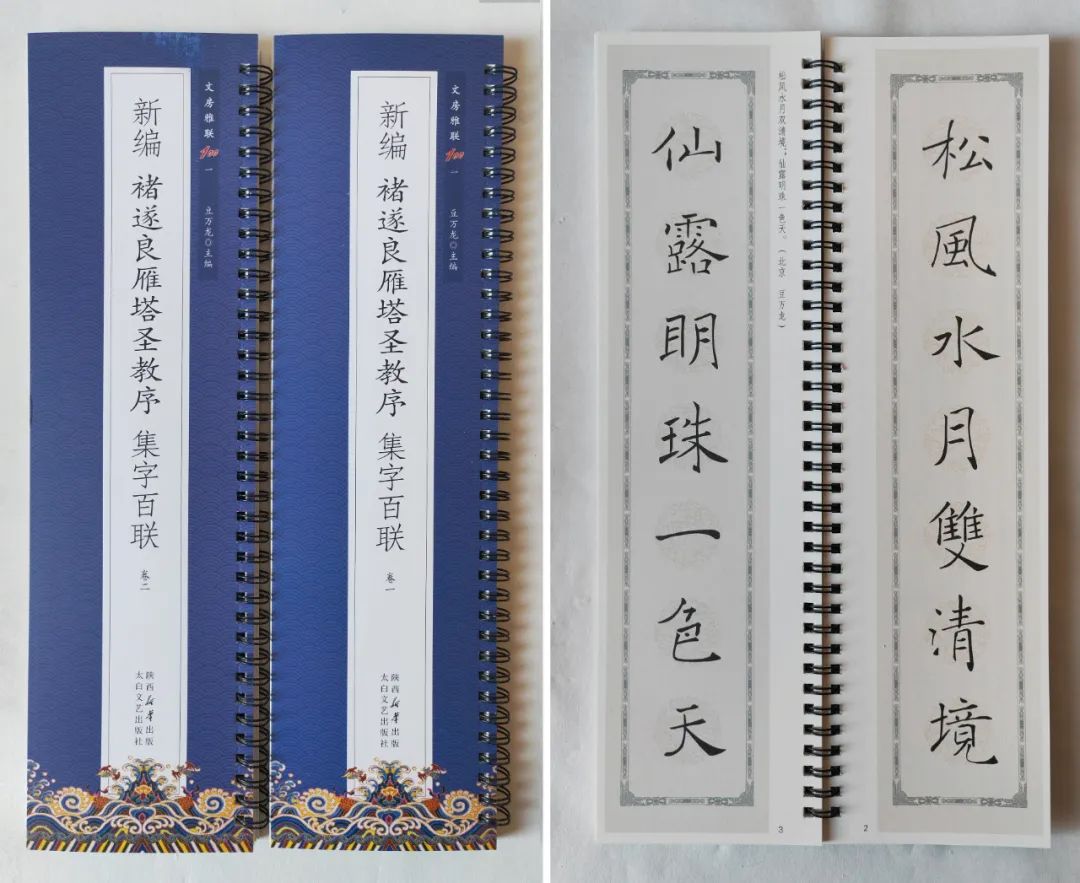 文房雅联 100 一
豆万龙◎主编
新编 褚遂良雁塔圣教序 集字百联 卷二
陕西新华出版
太白文艺出版社
文房雅联 100 一
豆万龙◎主编
新编 褚遂良雁塔圣教序 集字百联 卷一
陕西新华出版
太白文艺出版社
松風水月雙清境
2
松风水月双清境；仙露明珠一色天。（北京 豆万龙）
仙露眀珠一色天
3